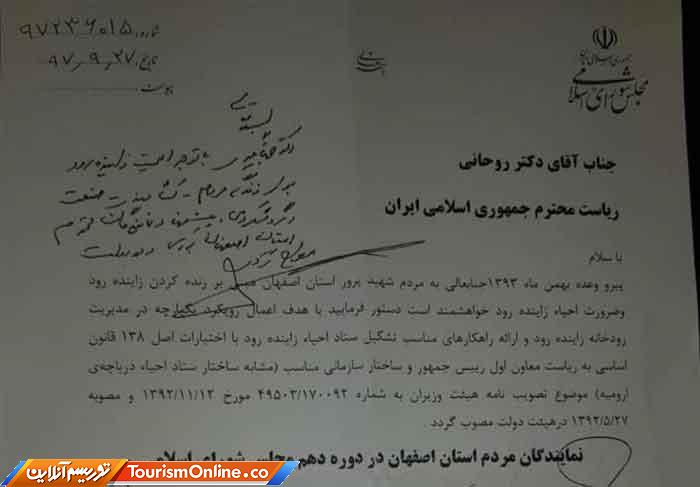 جمهوری اسلامی ایران
مجلس شورای اسلامی
شماره: ۹۷۲۳۶۰۱۵
تاریخ: ۹۷٫۹٫۲۷
پیوست:
جناب آقای دکتر روحانی
ریاست محترم جمهوری اسلامی ایران
با سلام
پیرو وعده بهمن ماه ۱۳۹۳جنابعالی به مردم شهید پرور استان اصفهان مبنی بر زنده کردن زاینده رود
وضرورت احیاء زاینده رود خواهشمند است دستور فرمایید با هدف اعمال رویکرد یکپارچه در مدیریت
رودخانه زاینده رود و ارائه راهکارهای مناسب تشکیل ستاد احیاء زاینده رود با اختیارات اصل ۱۳۸ قانون
اساسی به ریاست معاون اول رییس جمهور و ساختار سازمانی مناسب (مشابه ساختار ستاد احیاء دریاچه‌ی
ارومیه) موضوع تصویب نامه هیئت وزیران به شماره ۴۹۵۰۳/۱۷۰۰۹۲ مورخ ۱۳۹۲/۱۱/۱۲ و مصوبه
۱۳۹۲/۵/۲۷ درهیئت دولت مصوب گردد.
نمایندگان مردم استان اصفهان در دوره دهم مجلس شورای اسلامی
بسمه تعالی
با توجه اهمیت زاینده رود
برای زندگی مردم - کشاورزی صنعت
و گردشگری، پیشنهاد نمایندگان محترم
استان اصفهان در دولت
مطرح گردد
توریسم آنلاین
TourismOnline.co